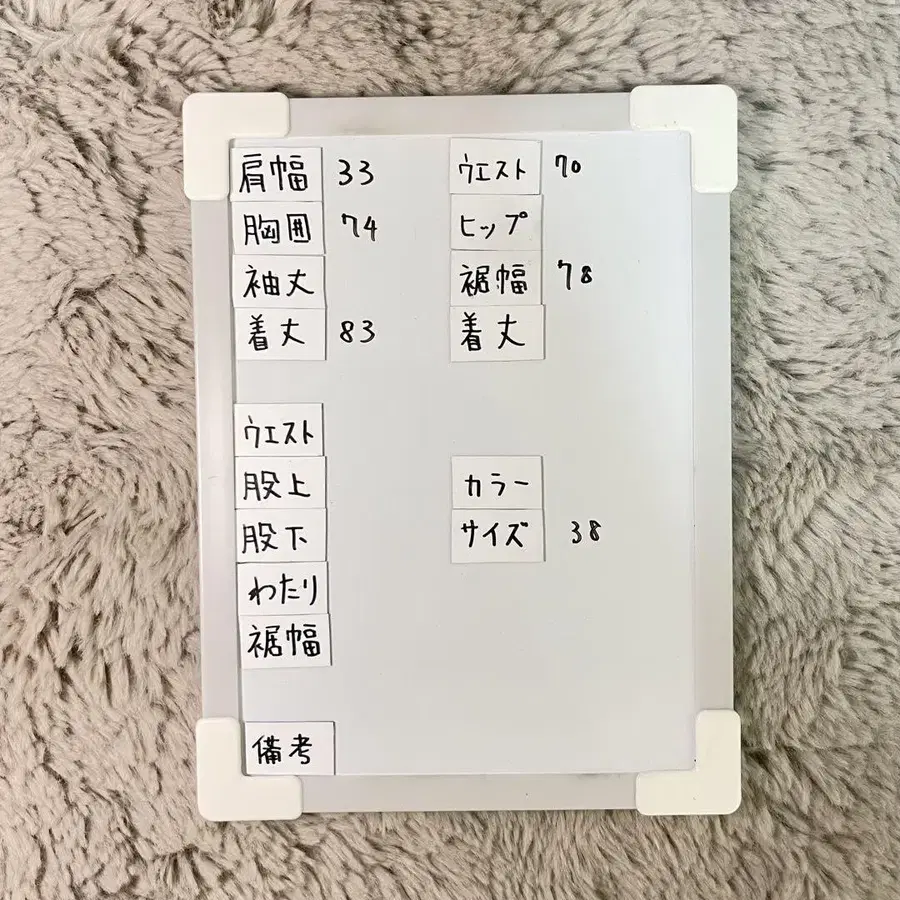 肩幅 33 ウエスト 70
胸囲 74 ヒップ
袖丈 裾幅 78
着丈 83 着丈
ウエスト
股上 カラー
股下 サイズ 38
わたり
裾幅
備考